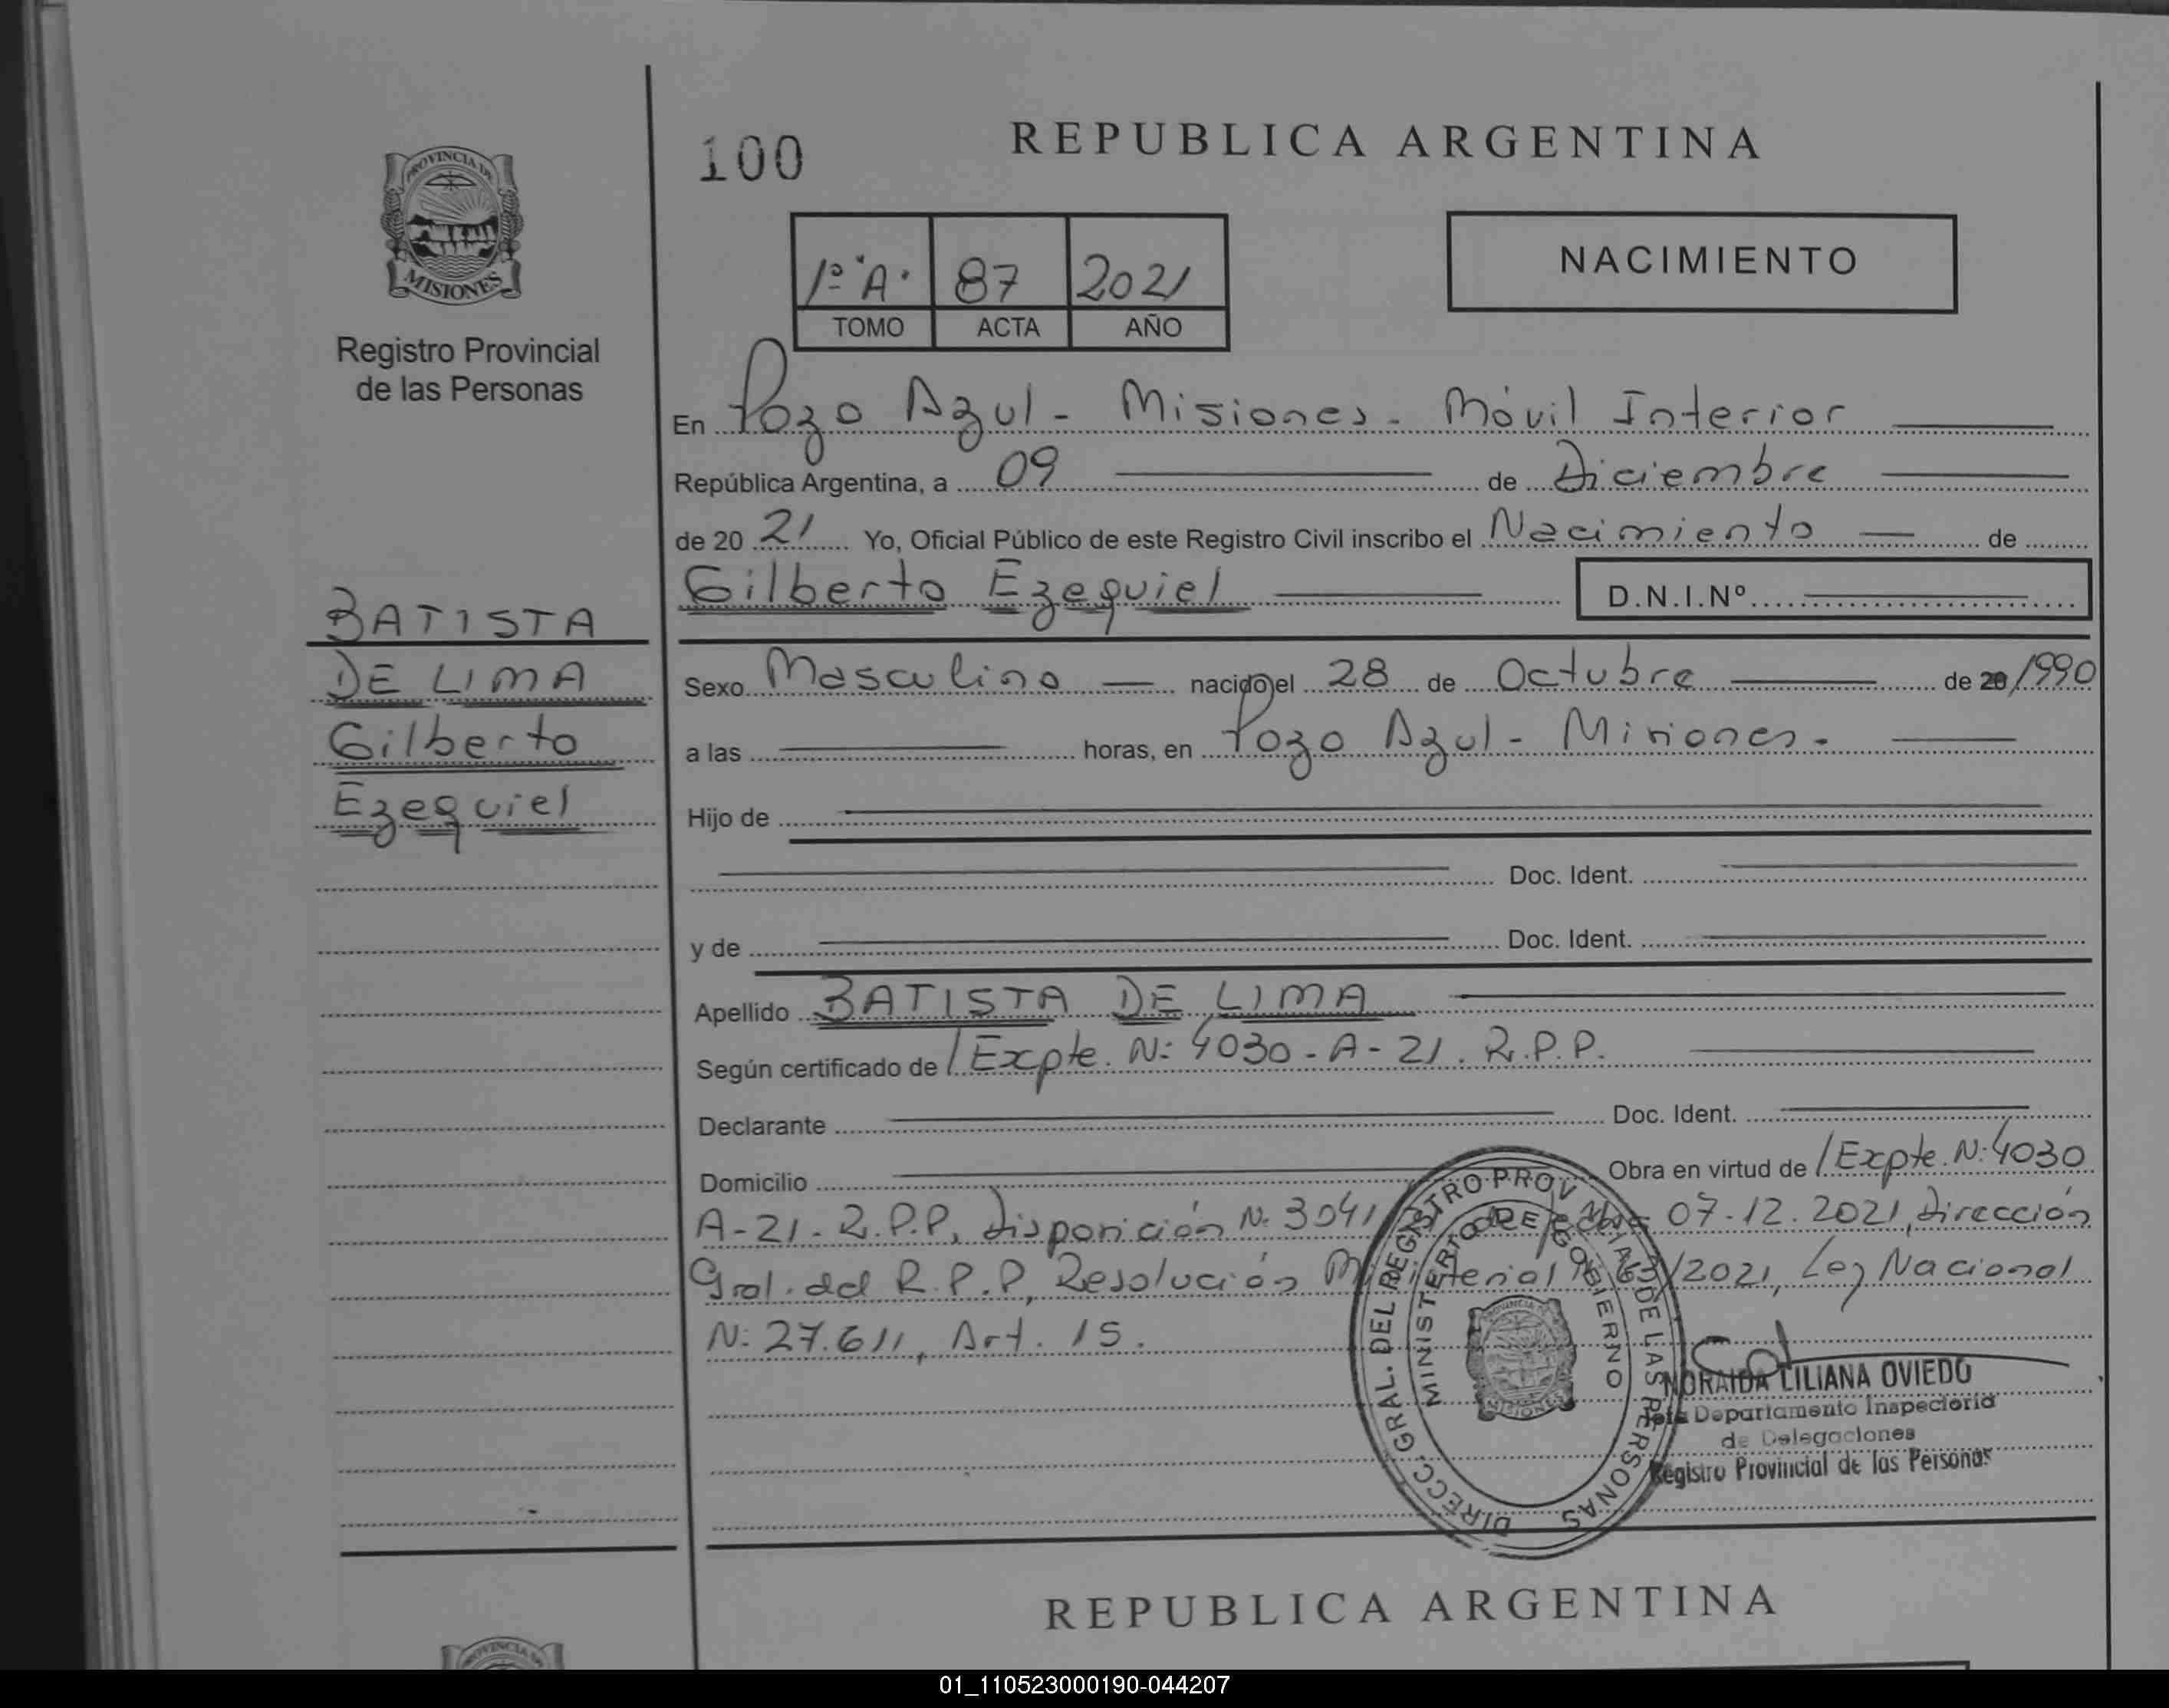 100
REPUBLICA ARGENTINA
PROVINCIA DE
MISIONES
Registro Provincial
de las Personas
1º "A" 87 2021
TOMO ACTA AÑO
NACIMIENTO
En Pozo Azul - Misiones - Móvil Interior
República Argentina, a 09 de Diciembre
de 20 21 Yo, Oficial Público de este Registro Civil inscribo el Nacimiento de
Gilberto Ezequiel D.N.I.Nº
BATISTA
DE LIMA
Gilberto
Ezequiel
Sexo Masculino nacido el 28 de Octubre de 20 /1990
a las horas, en Pozo Azul - Misiones.
Hijo de
Doc. Ident.
y de Doc. Ident.
Apellido BATISTA DE LIMA
Según certificado de /Expte. N: 4030 - A - 21. R.P.P.
Declarante Doc. Ident.
Domicilio Obra en virtud de /Expte. N: 4030
A-21-R.P.P, Disposición N: 3041 de fecha 07.12.2021, Dirección
Gral. del R.P.P, Resolución Ministerial /2021, Ley Nacional
N: 27.611, Art. 15.
DIRECC. GRAL. DEL REGISTRO PROVINCIAL DE LAS PERSONAS
MINISTERIO DE GOBIERNO
PROVINCIA DE
MISIONES
NORAIDA LILIANA OVIEDO
Jefa Departamento Inspectoría
de Delegaciones
Registro Provincial de las Personas
REPUBLICA ARGENTINA
PROVINCIA DE
01_110523000190-044207